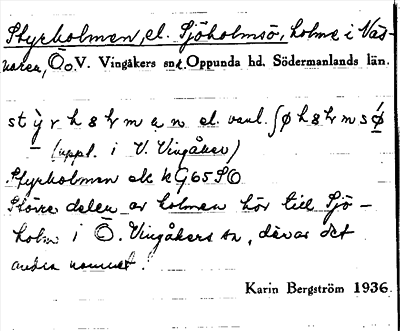 Styrholmen, el. Sjöholmsö, holme i Väs-
naren, Ö. o. V. Vingåkers snr Oppunda hd. Södermanlands län.
st ỳ r h å l m e n el. vanl. ʃ ø h å l m s ø
(uppt. i V. Vingåker)
Styrholmen ek kG65SO
Större delen av holmen hör till Sjö-
holm i Ö. Vingåkers sn, därav det
andra namnet.
Karin Bergström 1936.